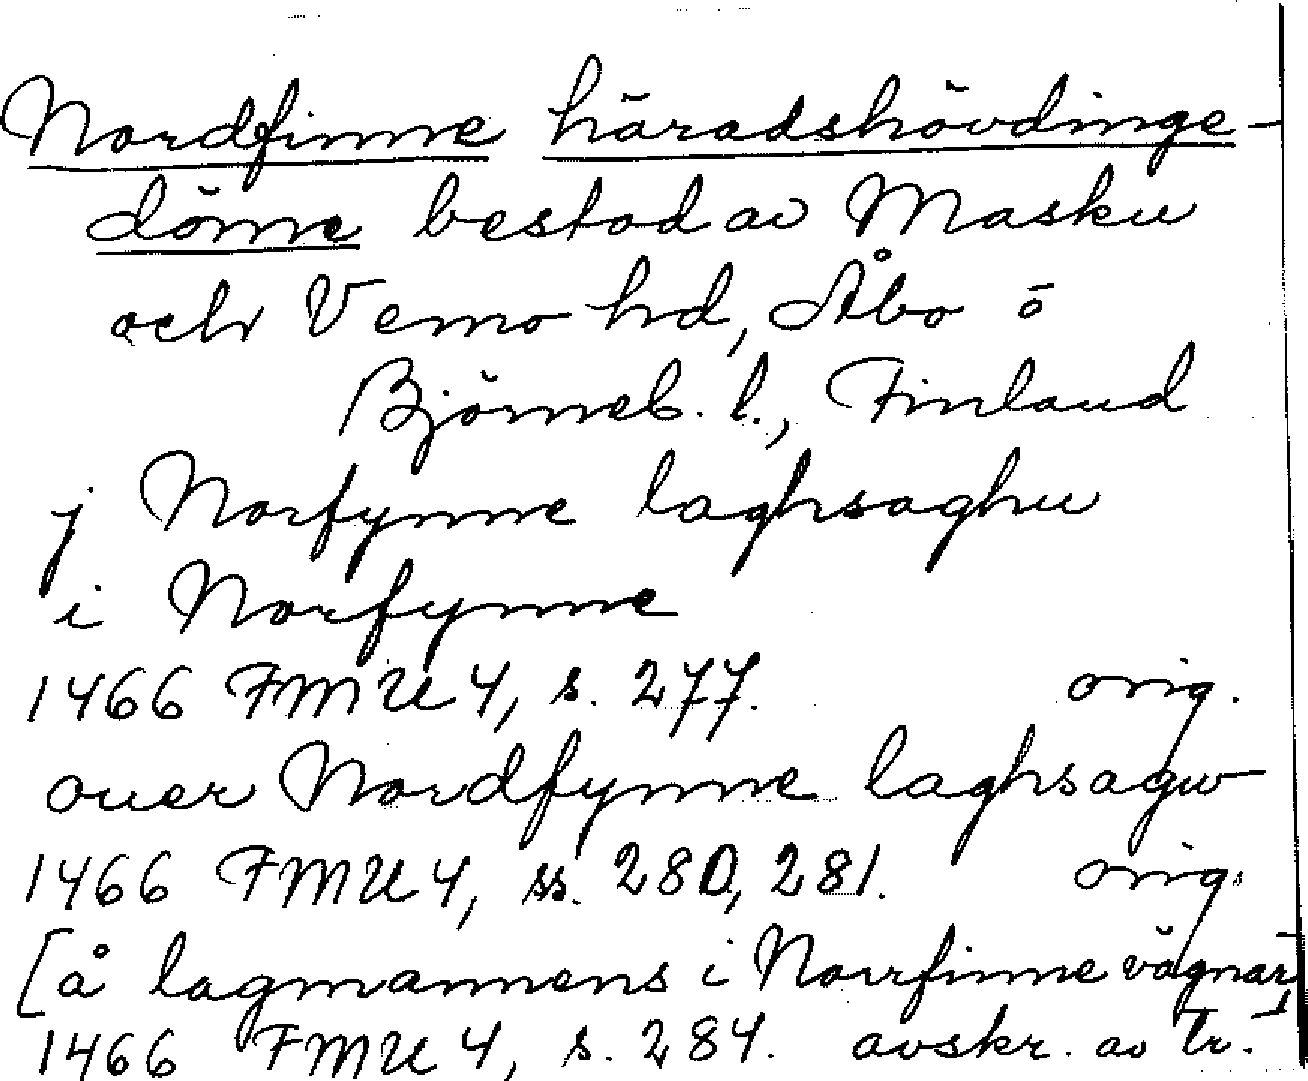 Nordfinne häradshövdinge-
döme bestod av Masku
och Vemo hd, Åbo o
Björneb. l., Finland
j Norfynne laghsaghu
i Norfynne
1466 FMU 4, s. 277. orig.
ouer Nordfynne laghsagw
1466 FMU 4, ss. 280, 281. orig.
[å lagmannens i Norrfinne vägnar]
1466 FMU 4, s. 284. avskr. av tr.